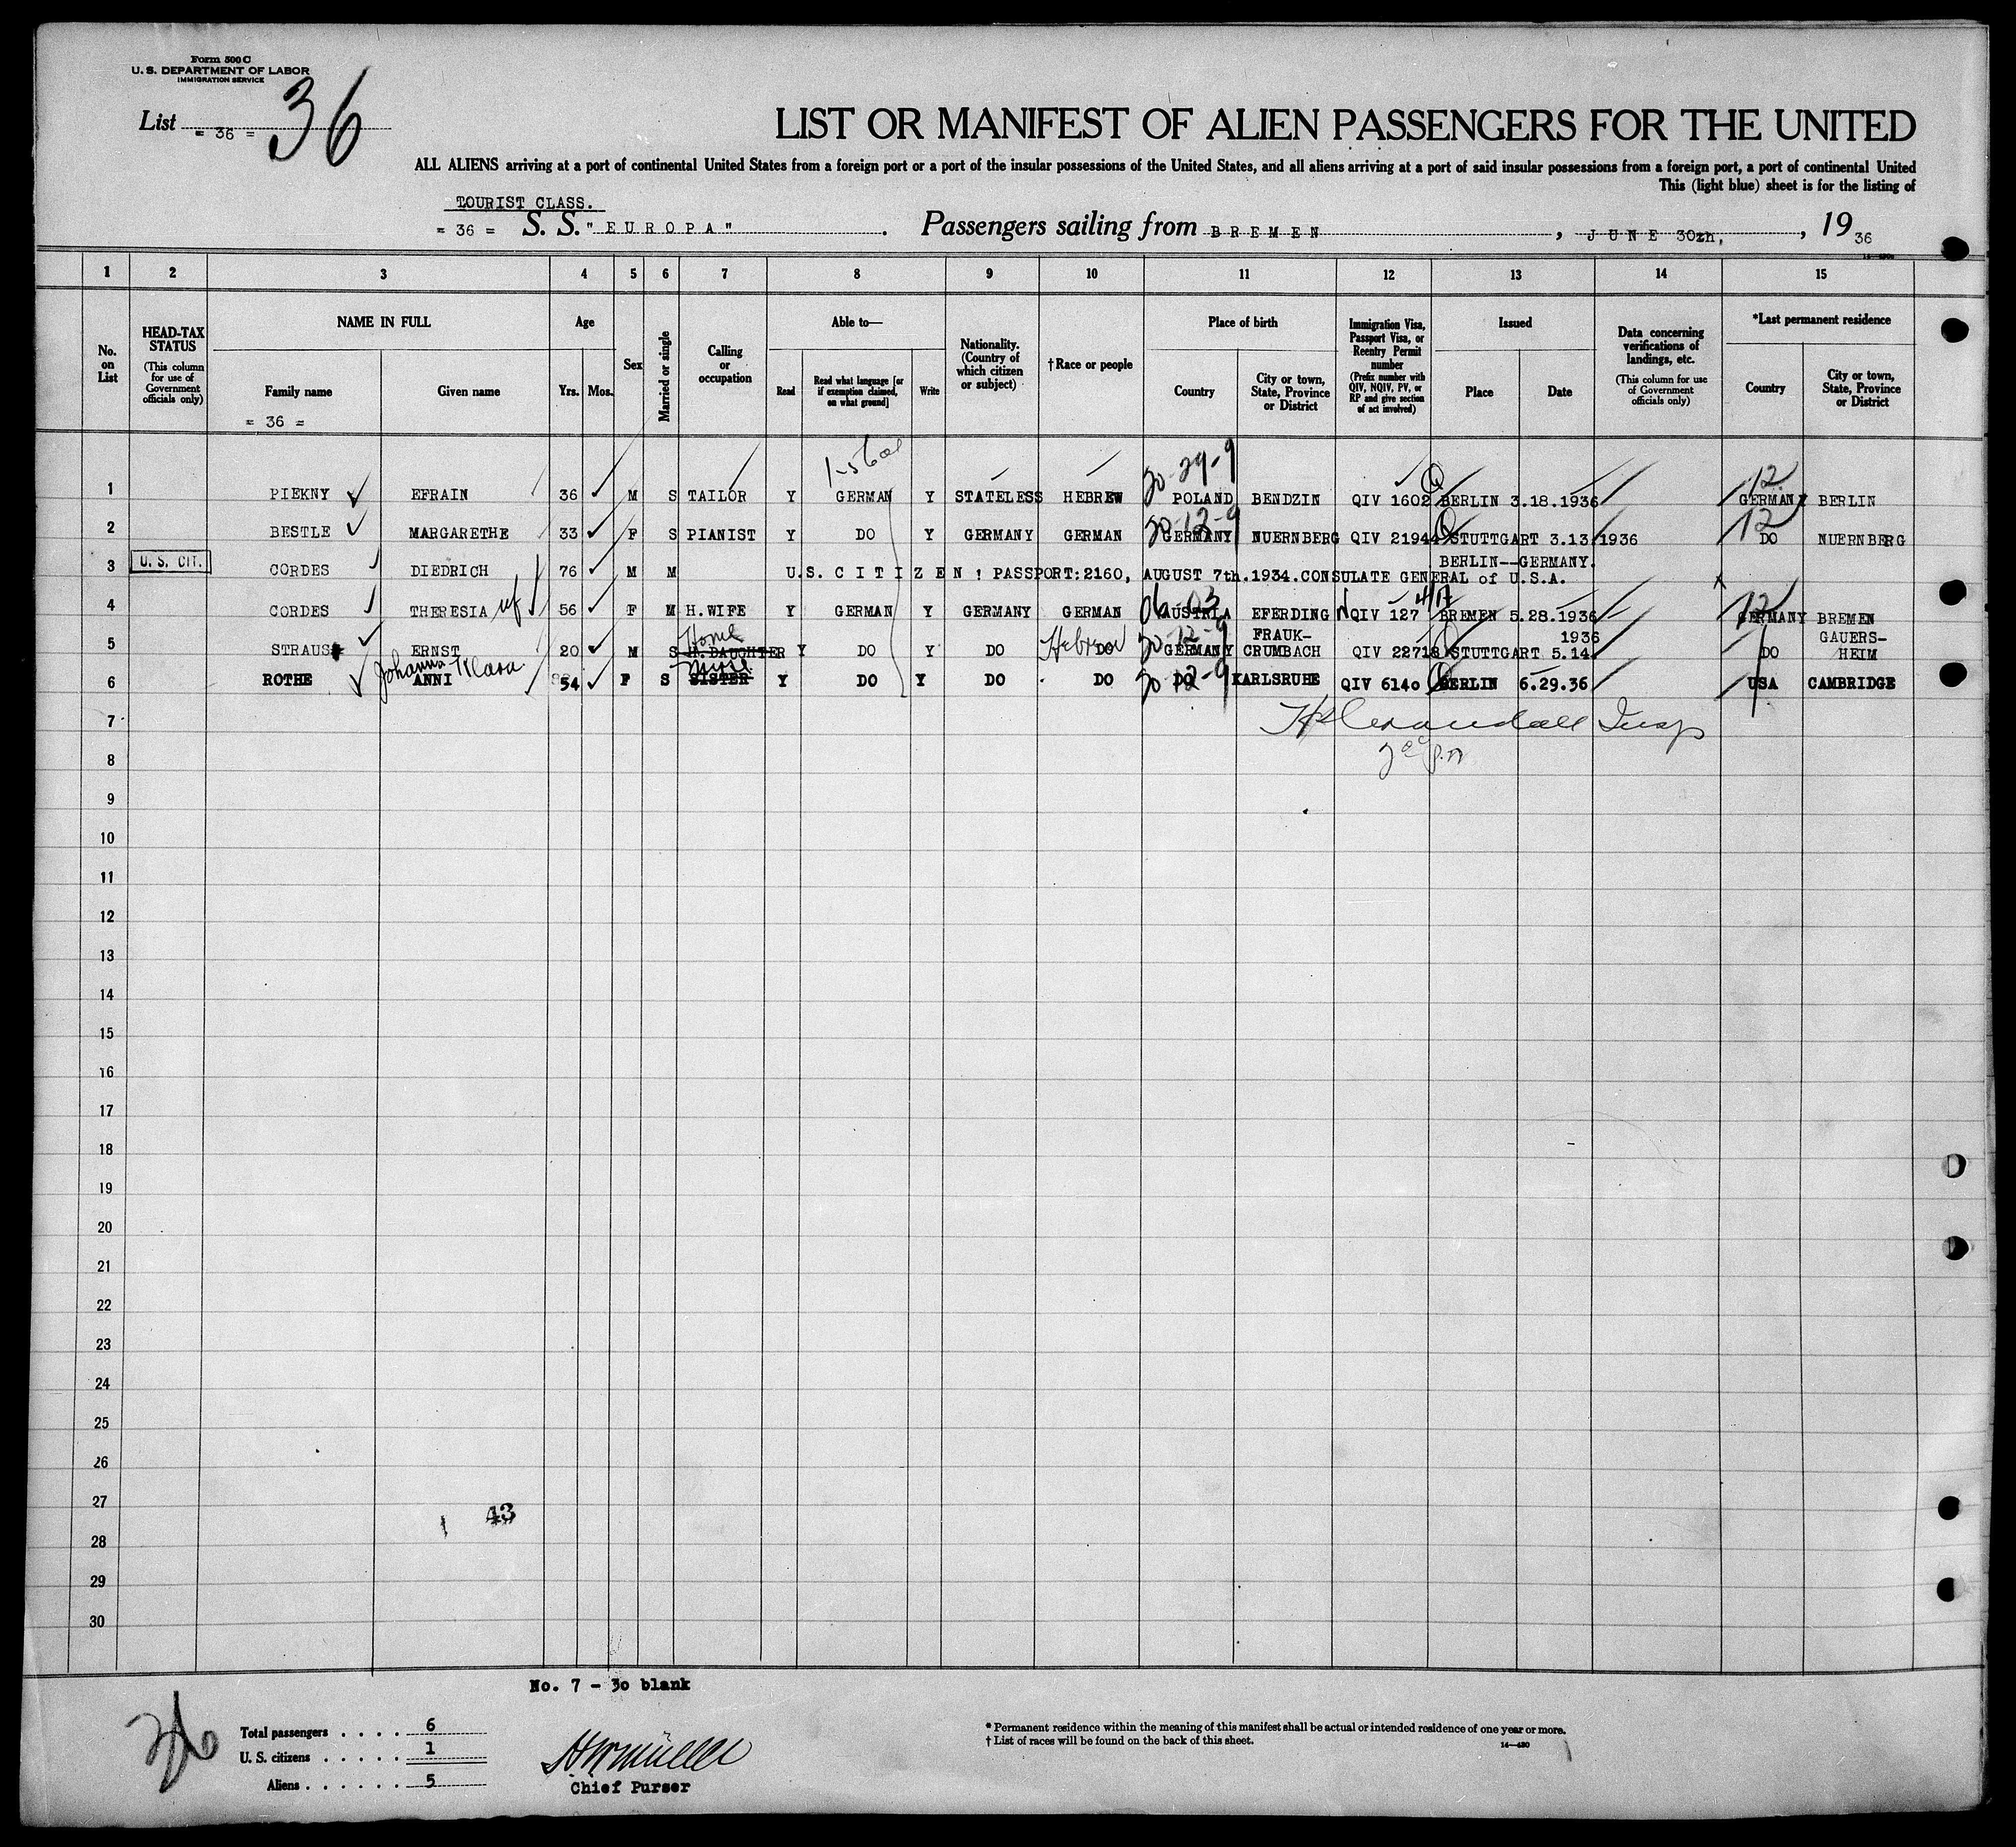 Form 500 C
U. S. DEPARTMENT OF LABOR
IMMIGRATION SERVICE
List = 36 = 36
LIST OR MANIFEST OF ALIEN PASSENGERS FOR THE UNITED
ALL ALIENS arriving at a port of continental United States from a foreign port or a port of the insular possessions of the United States, and all aliens arriving at a port of said insular possessions from a foreign port, a port of continental United
This (light blue) sheet is for the listing of
TOURIST CLASS.
= 36 = S. S. "EUROPA" . Passengers sailing from BREMEN , JUNE 30th, , 19 36
1 2 3 4 5 6 7 8 9 10 11 12 13 14 15
No. on List
HEAD-TAX STATUS (This column for use of Government officials only)
NAME IN FULL
Family name
Given name
= 36 =
Age
Yrs. Mos.
Sex
Married or single
Calling or occupation
Able to—
Read
Read what language [or if exemption claimed, on what ground]
Write
Nationality. (Country of which citizen or subject)
† Race or people
Place of birth
Country
City or town, State, Province or District
Immigration Visa, Passport Visa, or Reentry Permit number (Prefix number with QIV, NQIV, PV, or RP and give section of act involved)
Issued
Place
Date
Data concerning verifications of landings, etc. (This column for use of Government officials only)
*Last permanent residence
Country
City or town, State, Province or District
20-29-9 12
1 PIEKNY EFRAIN 36 M S TAILOR Y GERMAN Y STATELESS HEBREW POLAND BENDZIN QIV 1602 BERLIN 3.18.1936 GERMANY BERLIN
20-12-9 12
2 BESTLE MARGARETHE 33 F S PIANIST Y DO Y GERMANY GERMAN GERMANY NUERNBERG QIV 21944 STUTTGART 3.13.1936 DO NUERNBERG
U. S. CIT. BERLIN--GERMANY.
3 CORDES DIEDRICH 76 M M U.S. CITIZEN ! PASSPORT:2160, AUGUST 7th.1934.CONSULATE GENERAL of U.S.A.
4 CORDES THERESIA wf 56 F M H.WIFE Y GERMAN Y GERMANY GERMAN AUSTRIA EFERDING QIV 127 BREMEN 5.28.1936 12 GERMANY BREMEN
Home Hebrew 20-12-9 FRAUK- 1936 GAUERS-
5 STRAUS ERNST 20 M S H.DAUGHTER Y DO Y DO DO GERMANY CRUMBACH QIV 22718 STUTTGART 5.14 DO HEIM
Johanna Klara 20-12-9
6 ROTHE ANNI 54 F S SISTER Y DO Y DO DO DO KARLSRUHE QIV 6140 BERLIN 6.29.36 USA CAMBRIDGE
7
8
9
10
11
12
13
14
15
16
17
18
19
20
21
22
23
24
25
26
27
43
28
29
30
No. 7 - 30 blank
36
Total passengers . . . . . 6
U. S. citizens . . . . . . 1
Aliens . . . . . . . 5
Chief Purser
* Permanent residence within the meaning of this manifest shall be actual or intended residence of one year or more.
† List of races will be found on the back of this sheet.
14—430